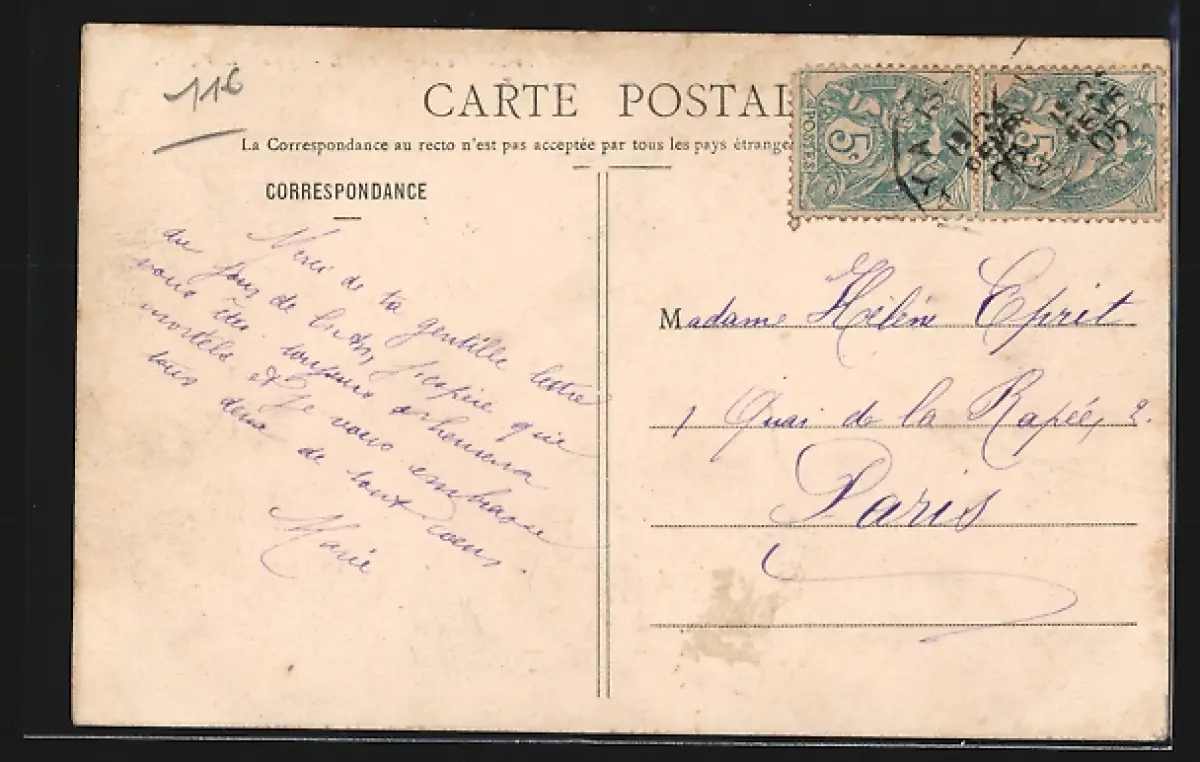 116
CARTE POSTAL
La Correspondance au recto n'est pas acceptée par tous les pays étrange
CORRESPONDANCE
POSTES 5c
5c
Merci de ta gentille lettre
du jour de l'an, j'espère que
vous êtes toujours
mortels et je vous embrasse
tous deux de tout cœur.
Marie
Madame Hélèn Esprit
1 Quai de la Rapée, 2.
Paris